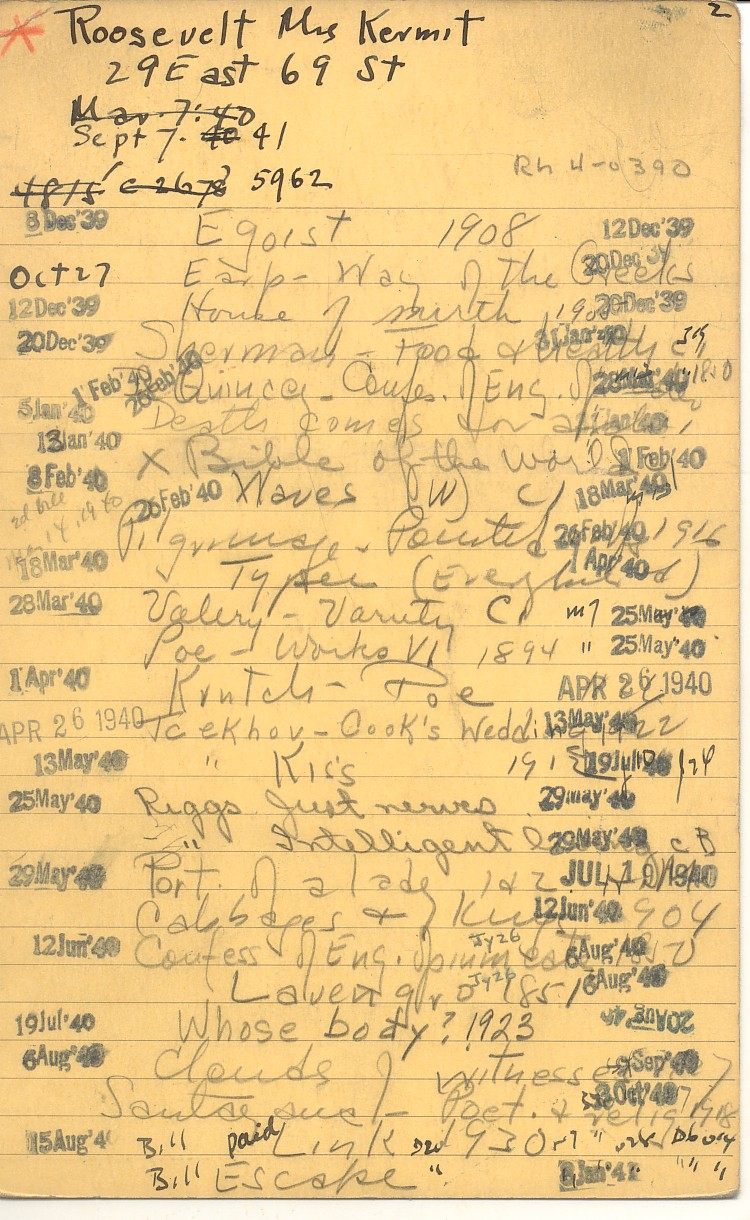 2
Roosevelt Mrs Kermit
29 East 69 St
Mar. 7. 40
Sept 7. 40 41
Rh 4-0390
4815 C 2678 5962
8 Dec '39 Egoist 1908 12 Dec '39
Oct 27 Earp - Way of the Greeks 20 Dec '39
12 Dec '39 House of mirth 20 Dec '39
20 Dec '39 Sherman - Food & health 31 Jan '40
1 Feb '40 26 Feb '40 Quincey - Confes. of Eng. 28 Mar '40
5 Jan '40 Death comes for
13 Jan '40 X Bible of the World 1 Feb '40
8 Feb '40 26 Feb '40 Waves (W) C 18 Mar '40
Pilgrimage - Pointed 26 Feb '40 1916
18 Mar '40 Typee (Everyman's) 1 Apr '40
28 Mar '40 Valery - Variety C 25 May '40
Poe - Works VI 1894 " 25 May '40
1 Apr '40 Krutch - Poe APR 26 1940
APR 26 1940 Tcekhov - Cook's Wedding 1922 13 May '40
13 May '40 " Kiss 1915 19 Jul '40
25 May '40 Riggs Just nerves 29 May '40
" Intelligent 29 May '40 C B
29 May '40 Port. of a lady 1 & 2 JUL 19 1940
Cabbages & Kings 12 Jun '40 904
12 Jun '40 Confess of Eng. Opium eater Jy 26 6 Aug '40
Lavengro Jy 26 1851 6 Aug '40
19 Jul '40 Whose body? 1923 20 Aug '40
6 Aug '40 Clouds of witness Sep '40
Santayana - Poet. & relig 1918 Oct '40
15 Aug '4 Bill paid Link 1930
Bill Escape " Jan '41 " " "